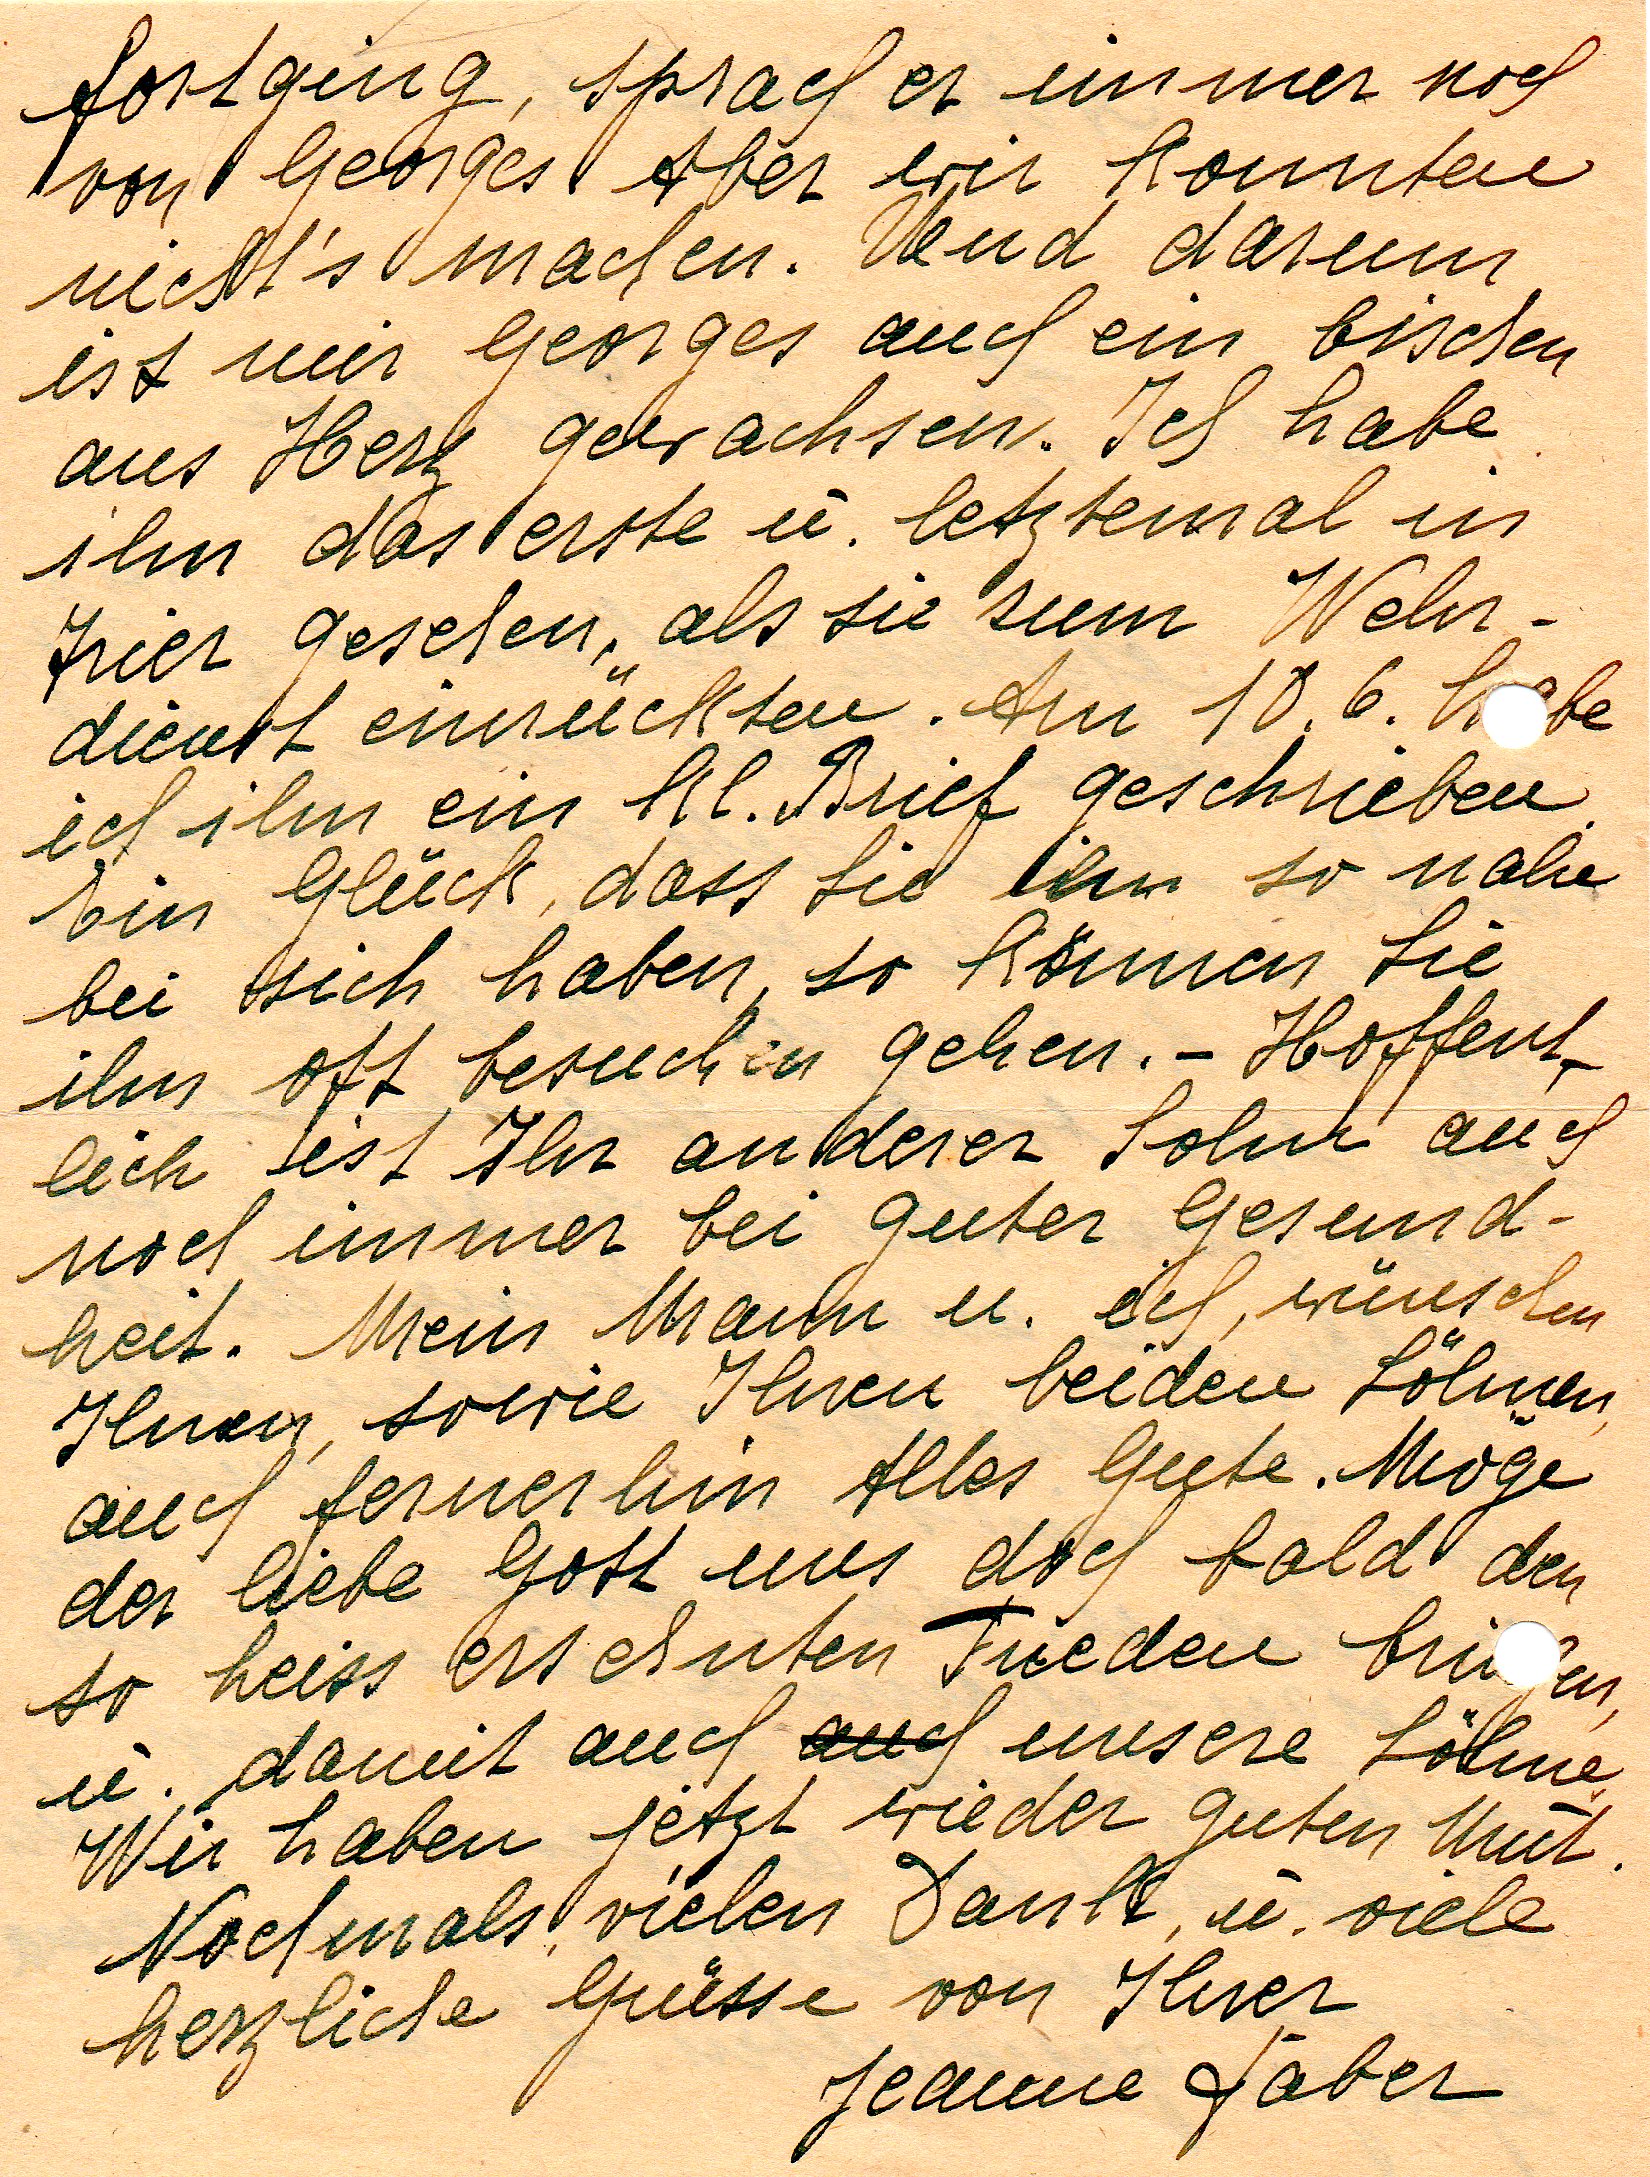 fortging, sprach er immer noch
von Georges Aber wir konnten
nicht's machen. Und darum
ist mir Georges auch ein bischen
ans Herz gewachsen. Ich habe
ihn das erste ü. letztemal in
Trier gesehen, als sie zum Wehr-
dienst einrückten. Am 10.6. habe
ich ihm ein kl. Brief geschrieben.
Ein Glück, dass Sie ihn so nahe
bei sich haben, so können Sie
ihn oft besuchen gehen. - Hoffent-
lich ist Ihr anderer Sohn auch
noch immer bei guter Gesund-
heit. Mein Mann u. ich, wünschen
Ihnen, sowie Ihren beiden Söhnen,
auch fernerhin Alles Gute. Möge
der liebe Gott uns doch bald den
so heiss ersehnten Frieden bringen,
ü. damit auch auch unsere Söhne.
Wir haben jetzt wieder guten Mut.
Nochmals vielen Dank, ü. viele
herzliche Grüsse von Ihrer
Jeanne Faber